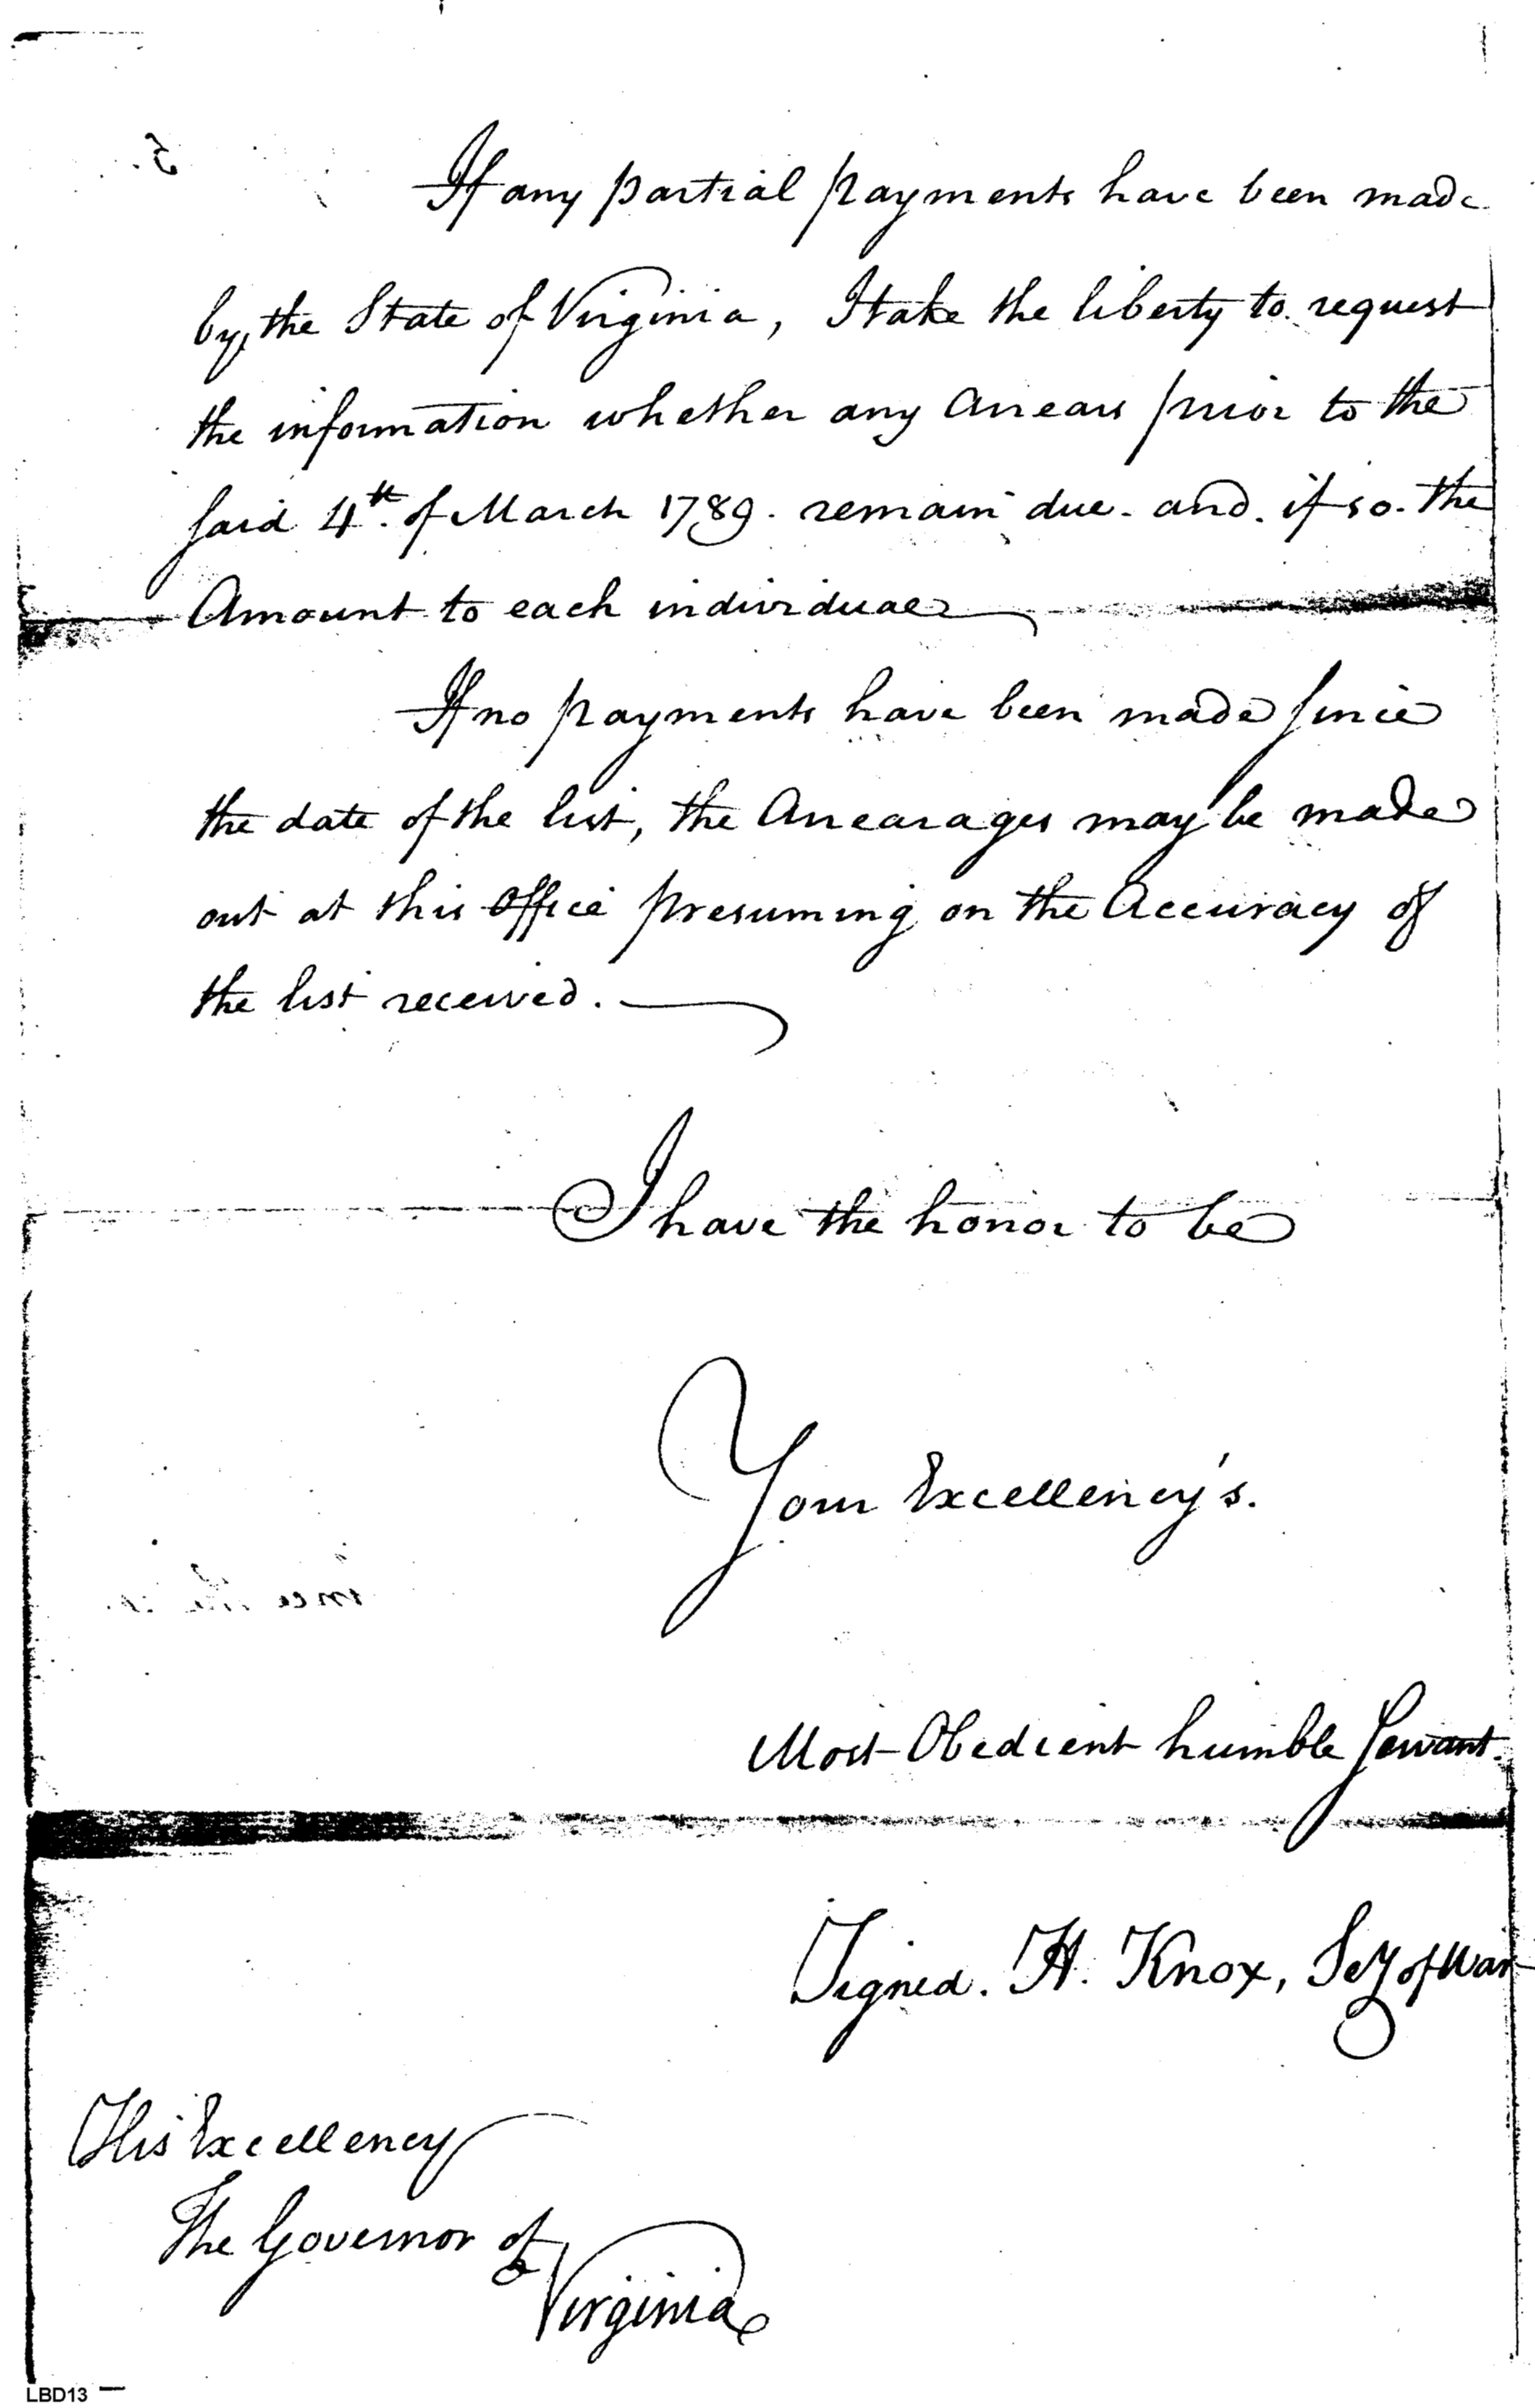 If any partial payments have been made
by, the State of Virginia, I take the liberty to request
the information whether any Arrears prior to the
said 4th. of March 1789. remain due. and. if so. the
Amount to each individual
If no payments have been made since
the date of the list, the Arrearages may be made
out at this Office presuming on the Accuracy of
the list received.
I have the honor to be
Your Excellency's.
Most Obedient humble Servant.
Signed. H. Knox, Sey of War
His Excellency
The Governor of
Virginia
LBD13